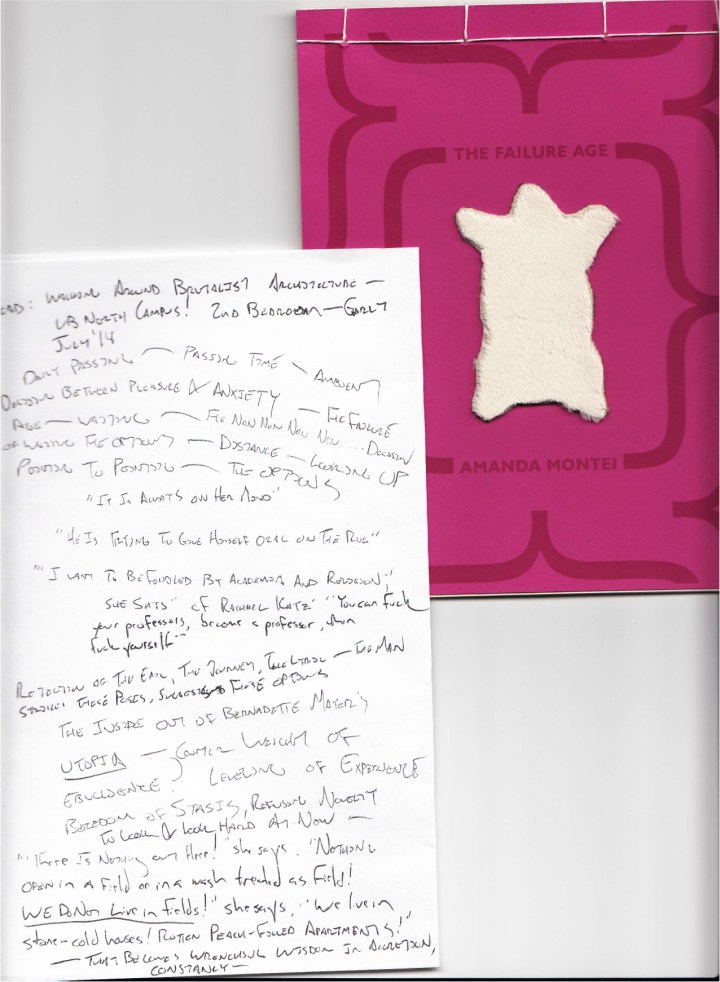 THE FAILURE AGE
AMANDA MONTEI
READ: WALKING AROUND BRUTALIST ARCHITECTURE —
UB NORTH CAMPUS! 2ND BEDROOM — EARLY
JULY '14
DAILY PASSING — PASSING TIME — AMBIENT
DECISION BETWEEN PLEASURE & ANXIETY — THE FAILURE
AGE — WAITING — THE NOW NOW NOW NOW ... DECISION
OF WAITING THE OPTIONS — DISTANCE — LOOKING UP
POINTING TO POINTING — THE OPTIONS
"IT IS ALWAYS ON HER MIND"
"HE IS TRYING TO GIVE HIMSELF ORAL ON THE RUG"
"'I WANT TO BE FONDLED BY ACADEMIA AND REVISION,'
SHE SAYS" CF RACHAEL KATZ' "You can fuck
your professors, become a professor, then
fuck yourself"
REJECTION OF THE EPIC, THE JOURNEY, THE LYRIC — THE MAN
STRIKES THESE POSES, SUGGESTS THESE OPTIONS
THE INSIDE OUT OF BERNADETTE MAYER'S
UTOPIA — COUNTER WEIGHT OF
EBULLIENCE. LEVELING OF EXPERIENCE
BOREDOM OF STASIS, REFUSING NOVELTY
TO LOOK & LOOK HARD AT NOW —
"'THERE IS NOTHING OUT HERE!' she says. 'NOTHING
OPEN IN A FIELD or in a wash treated as field!
WE DO NOT LIVE in fields!' she says. 'We live in
stone-cold houses! ROTTEN PEACH-FILLED APARTMENTS!'"
— THAT BECOMES WRENCHING WISDOM IN ACCRETION,
CONSTANCY —